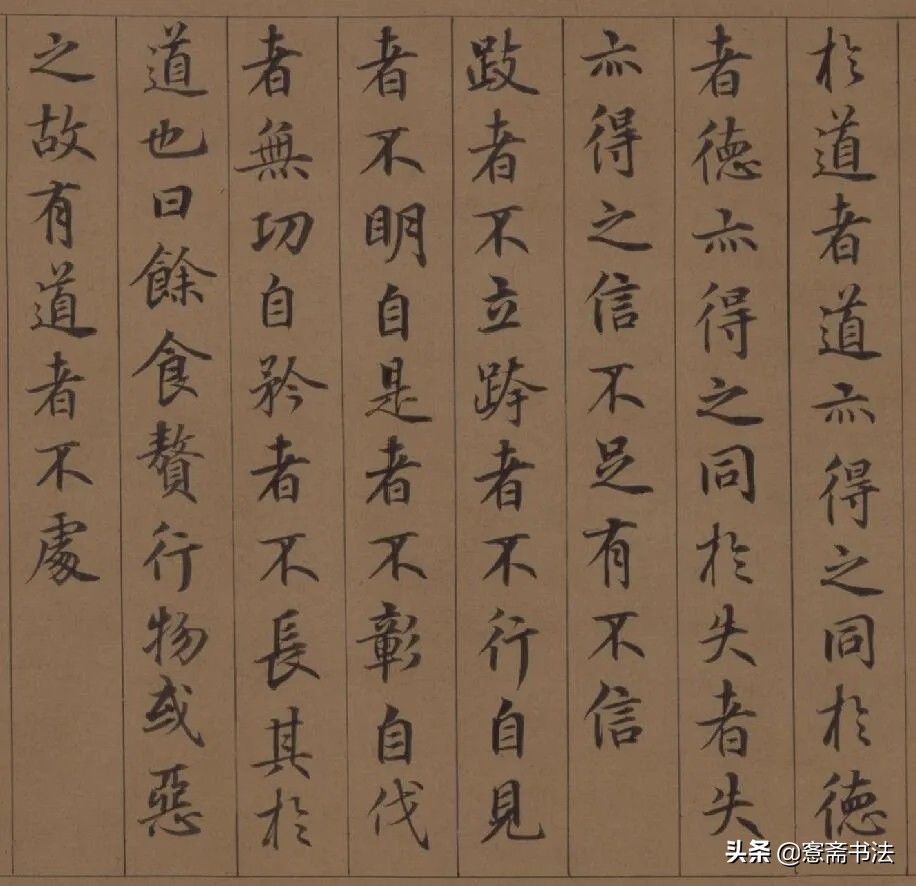 於道者道亦得之同於德
者德亦得之同於失者失
亦得之信不足有不信
跂者不立跨者不行自見
者不明自是者不彰自伐
者無功自矜者不長其於
道也曰餘食贅行物或惡
之故有道者不處
头条 @愙斋书法